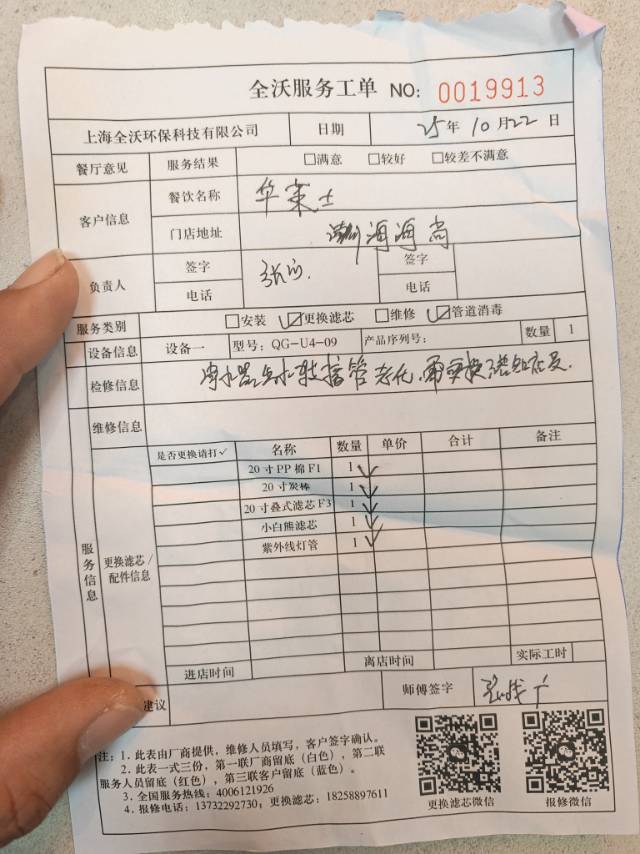 全沃服务工单 NO: 0019913
上海全沃环保科技有限公司 日期 25年10月22日
餐厅意见 服务结果 □满意 □较好 □较差不满意
客户信息 餐饮名称 华莱士
门店地址 海
负责人 签字 签字
电话 电话
服务类别 □安装 ☑更换滤芯 □维修 ☑管道消毒
设备信息 设备一 型号: QG-U4-09 产品序列号: 数量 1
检修信息 净水器 水 接管老化,需更换
维修信息
服务信息
更换滤芯/配件信息
是否更换请打✓ 名称 数量 单价 合计 备注
20寸PP棉F1 1 ✓
20寸炭棒 1 ✓
20寸叠式滤芯F3 1 ✓
小白熊滤芯 1 ✓
紫外线灯管 1 ✓
进店时间 离店时间 实际工时
建议 师傅签字
注: 1. 此表由厂商提供, 维修人员填写, 客户签字确认。
2. 此表一式三份, 第一联厂商留底(白色), 第二联
服务人员留底(红色), 第三联客户留底(蓝色)。
3. 全国服务热线: 4006121926
4. 报修电话: 13732292730; 更换滤芯: 18258897611
更换滤芯微信 报修微信